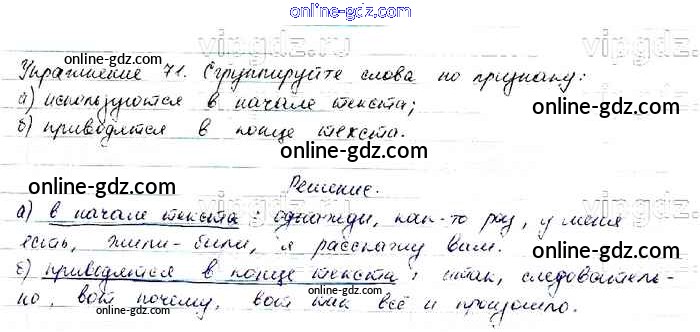 online-gdz.com
vipgdz.ru
online-gdz.com
Упражнение 71. Сгруппируйте слова по признаку:
а) используются в начале текста;
online-gdz.com
online-gdz.com
б) приводятся в конце текста.
online-gdz.com
online-gdz.com
Решение.
online-gdz.com
а) в начале текста: однажды, как-то раз, у меня
есть, жили-были, я расскажу вам.
online-gdz.com
б) приводятся в конце текста: итак, следователь-
но, вот почему, вот так всё и произошло.
online-gdz.com
vipgdz.ru
online-gdz.com